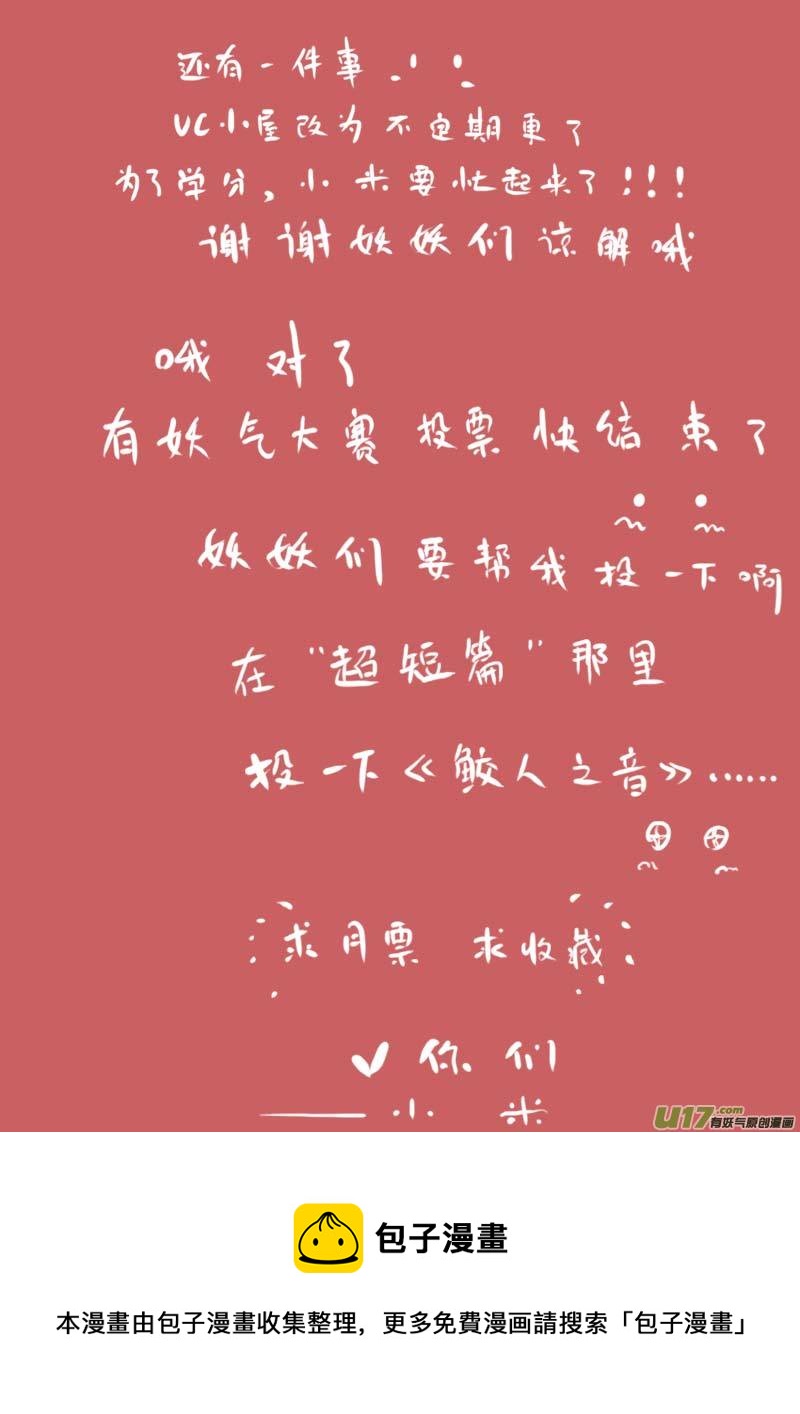 还有一件事..!!
VC小屋改为不定期更了
为了学分，小米要忙起来了!!!
谢谢妖妖们谅解哦
哦 对了
有妖气大赛投票快结束了
妖妖们要帮我投一下啊
在"超短篇"那里
投一下《鲛人之音》……
求月票 求收藏
你们
——小米
U17.com
有妖气原创漫画
包子漫畫
本漫畫由包子漫畫收集整理，更多免費漫画請搜索「包子漫畫」